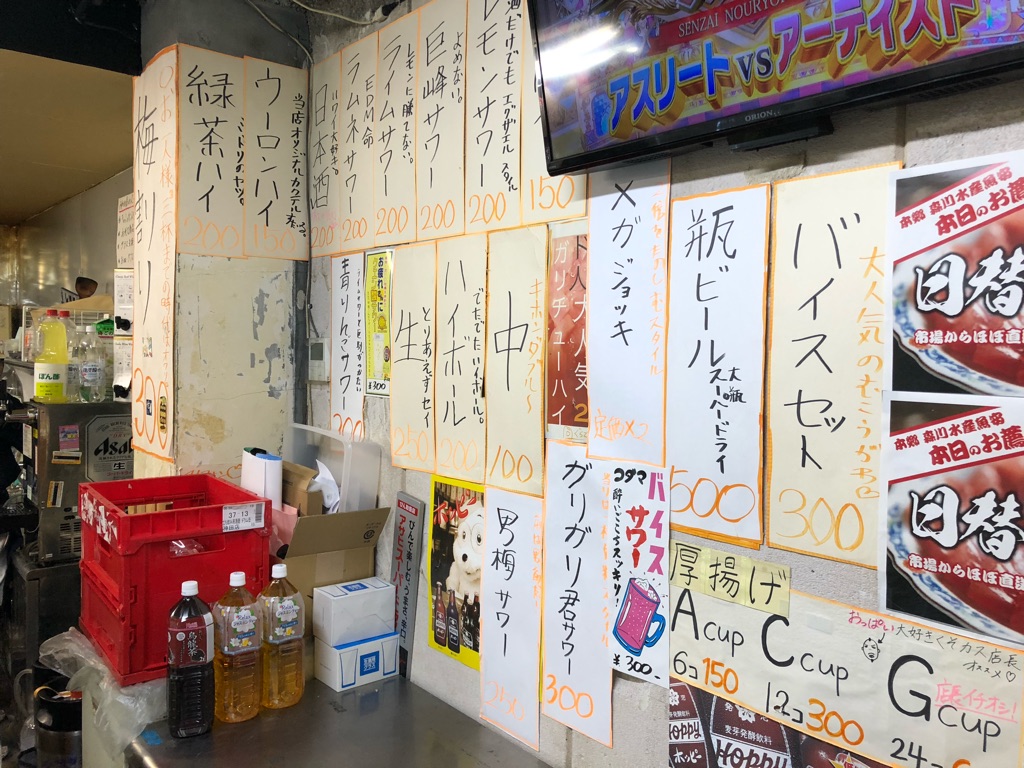 SENZAI NOURYOK
アスリート VS アーティスト
ORION
梅割り
300
緑茶ハイ
ミドリのヤツ。
200
ウーロンハイ
150
日本酒
ハワイ大好き。
200
ラムネサワー
EDM命
200
ライムサワー
レモンに勝てない。
200
巨峰サワー
よめない。
200
レモンサワー
200
150
青りんごサワー
300
お疲れさんに
¥300
生
とりあえずセイ
250
ハイボール
200
中
100
大人気
ガリチューハイ
メガジョッキ
定価×2
瓶ビール
大瓶
スーパードライ
500
バイスセット
大人気のむこうがわ
300
本郷 森川水産魚客
本日のお薦
日替
市場からほぼ直送
本郷 森川水産魚客
本日のお薦
日替
市場からほぼ直送
ホッピー
男梅サワー
250
ガリガリ君サワー
300
コダマ
バイスサワー
酔いごこちもスッキリ!
¥300
厚揚げ
A cup
6コ 150
C cup
12コ 300
おっぱい大好きくそカス店長
オススメ♡
G cup
店長イチオシ!
24コ
麦芽発酵飲料
HOPPY
ホッピー
HOPPY
Asahi
生
ぽん酢
37 13
烏龍茶
びんで楽しむうまさ・辛口
アサヒスーパー